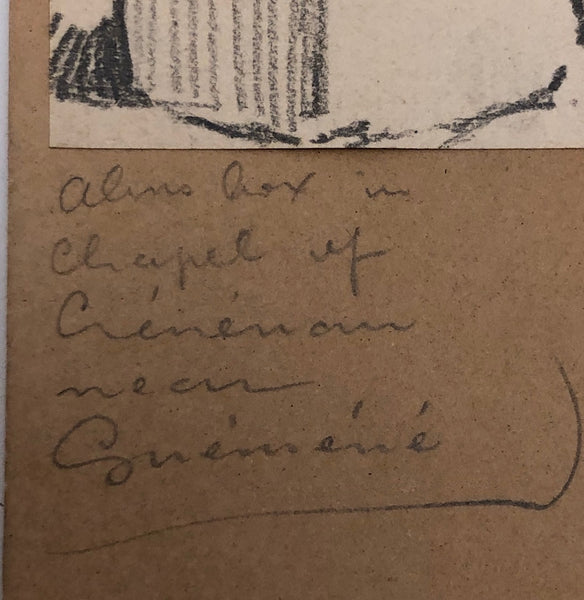 Alms box in
Chapel of
Crénénan
near
Guéméné